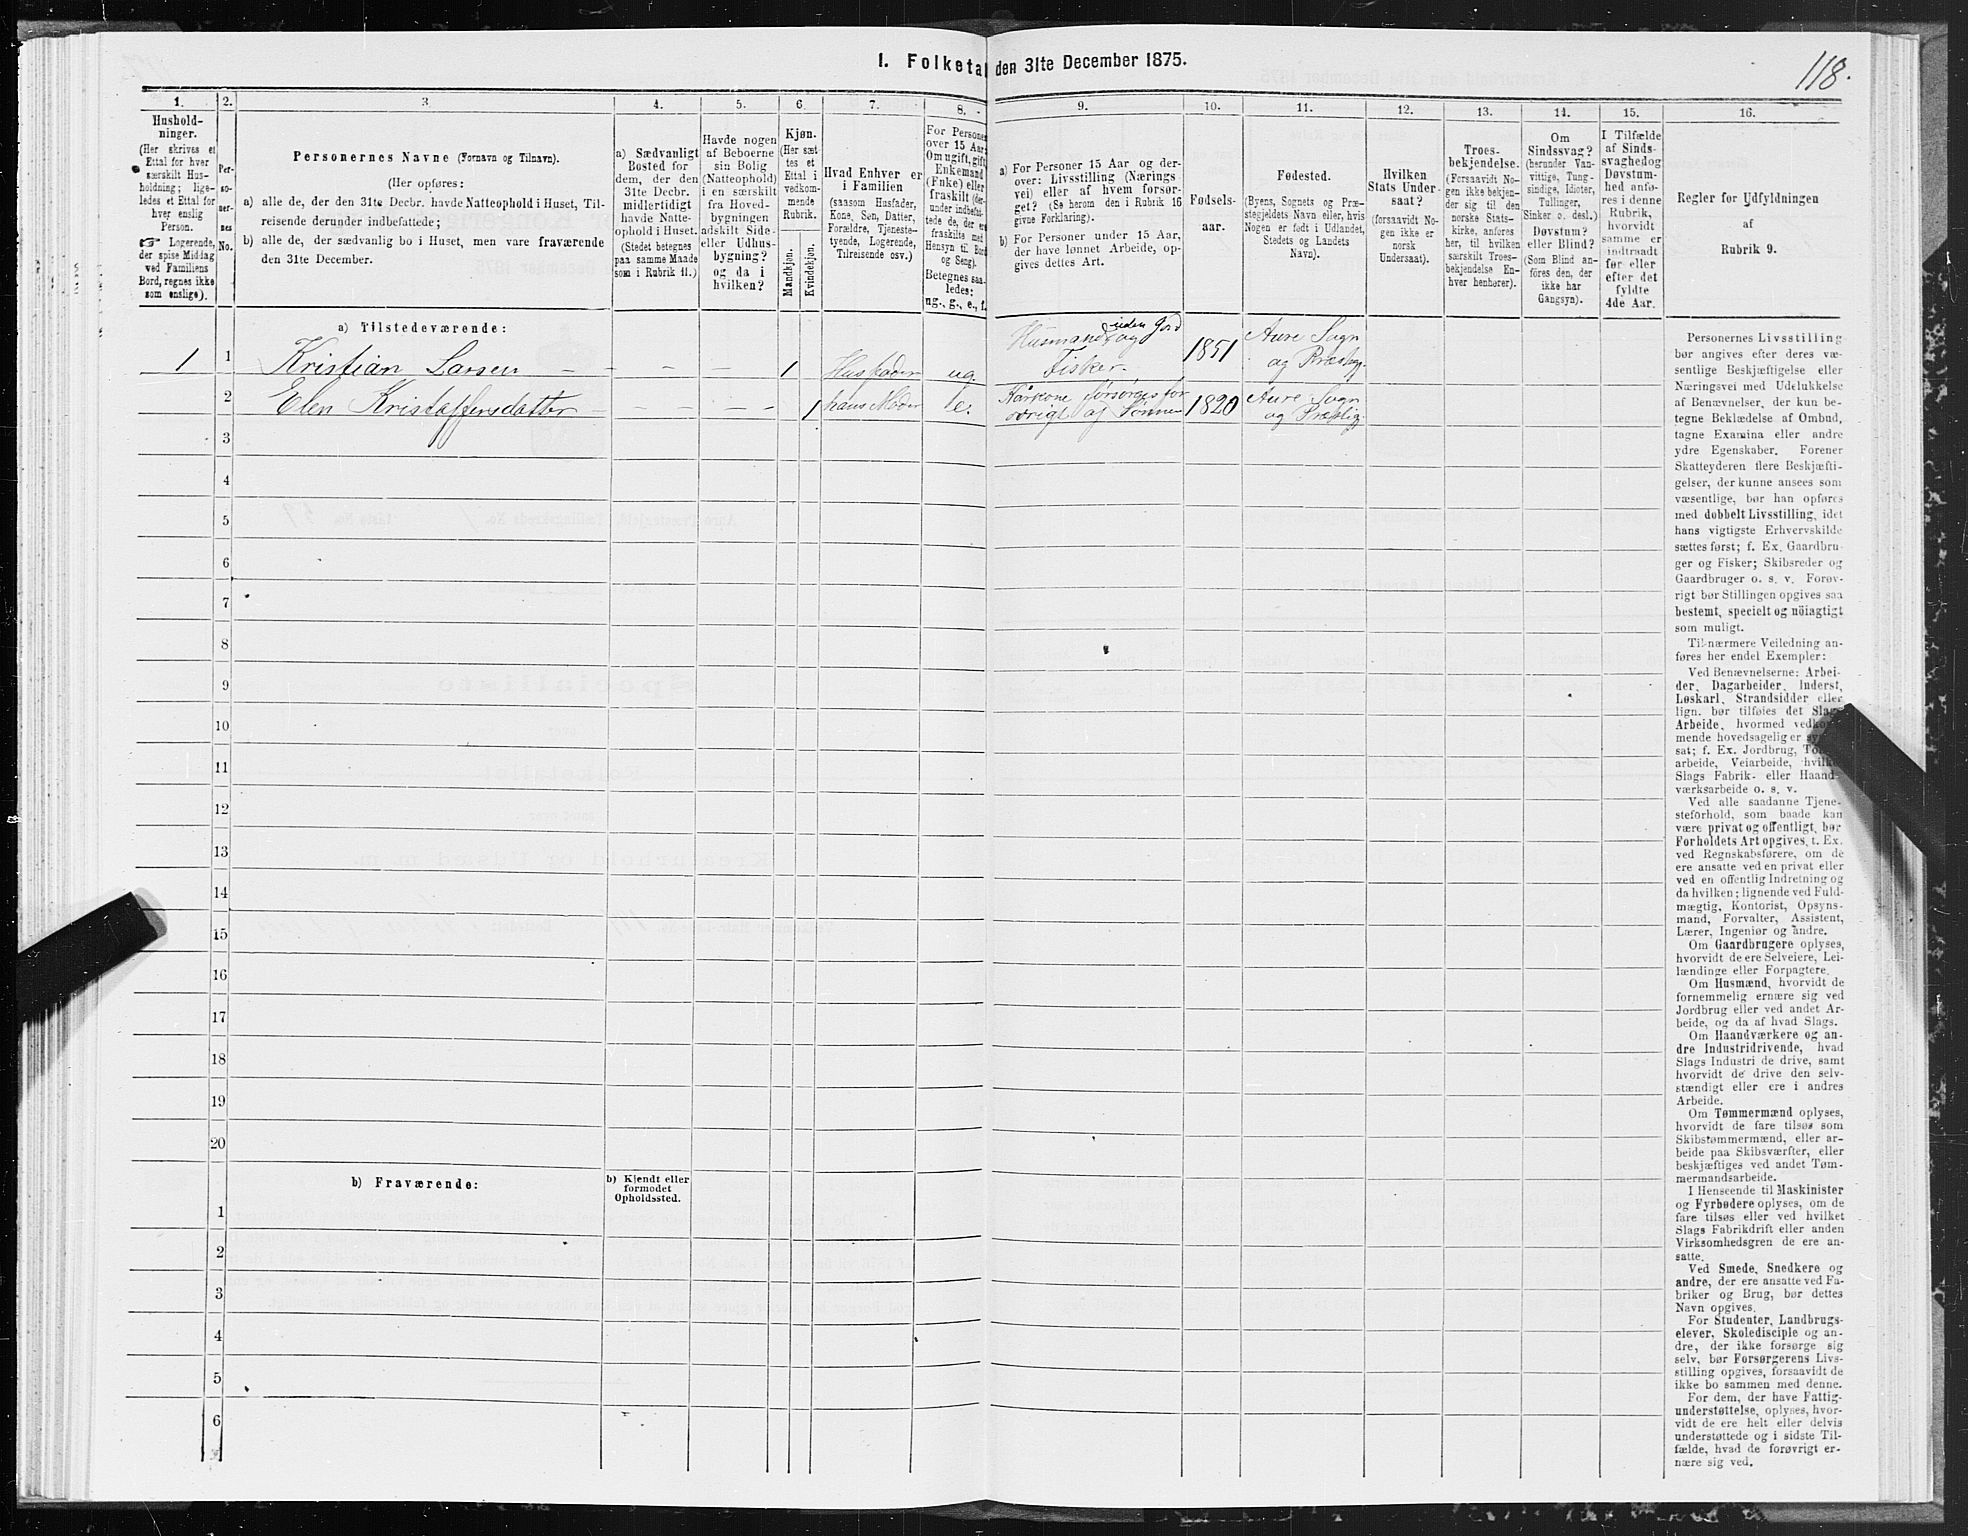 1. Folketal den 31te December 1875.
118.
1.
2.
3.
4.
5.
6.
7.
8.
9.
10.
11.
12.
13.
14.
15.
16.
Hushold-
ninger.
(Her skrives et
Ettal for hver
særskilt Hus-
holdning; lige-
ledes et Ettal for
hver enslig
Person.
☞ Logerende,
der spise Middag
ved Familiens
Bord, regnes ikke
som enslige).
Per-
so-
ner-
nes
No.
Personernes Navne (Fornavn og Tilnavn).
(Her opføres:
a) alle de, der den 31te Decbr. havde Natteophold i Huset, Til-
reisende derunder indbefattede;
b) alle de, der sædvanlig bo i Huset, men vare fraværende
den 31te December.
a) Sædvanligt
Bosted for
dem, der den
31te Decbr.
midlertidigt
havde Natte-
ophold i Huset.
(Stedet betegnes
paa samme Maade
som i Rubrik 11.)
Havde nogen
af Beboerne
sin Bolig
(Natteophold)
i en særskilt
fra Hoved-
bygningen
adskilt Side-
eller Udhus-
bygning?
og da i
hvilken?
Kjøn.
(Her sæt-
tes et
Ettal i
vedkom-
mende
Rubrik.
Mandkjøn.
Kvindekjøn.
Hvad Enhver er
i Familien
(saasom Husfader,
Kone, Søn, Datter,
Forældre, Tjeneste-
tyende, Logerende,
Tilreisende osv.)
For Personer
over 15 Aar:
Om ugift, gift,
Enkemand
(Enke) eller
fraskilt (der-
under indbefat-
tede de, der ere
fraskilte med
Hensyn til Bord
og Seng).
Betegnes saa-
ledes:
ug., g., e., f.
a) For Personer 15 Aar og der-
over: Livsstilling (Nærings-
vei) eller af hvem forsør-
get? (Se herom den i Rubrik 16
givne Forklaring).
b) For Personer under 15 Aar,
der have lønnet Arbeide, op-
gives dettes Art.
Fødsels-
aar.
Fødested.
(Byens, Sognets og Præ-
stegjeldets Navn eller, hvis
Nogen er født i Udlandet,
Stedets og Landets
Navn).
Hvilken
Stats Under-
saat?
(forsaavidt No-
gen ikke er
norsk
Undersaat).
Troes-
bekjendelse.
(Forsaavidt No-
gen ikke bekjen-
der sig til den
norske Stats-
kirke, anføres
her, til hvilken
særskilt Troes-
bekjendelse En-
hver henhører).
Om
Sindssvag?
(herunder Van-
vittige, Tung-
sindige, Idioter,
Tullinger,
Sinker o. desl.)
Døvstum?
eller Blind?
(Som Blind an-
føres den, der
ikke har
Gangsyn).
I Tilfælde
af Sinds-
svaghed og
Døvstum-
hed anfø-
res i denne
Rubrik,
hvorvidt
samme er
indtraadt
før eller
efter det
fyldte
4de Aar.
Regler for Udfyldningen
af
Rubrik 9.
a) Tilstedeværende:
1 1 Kristian Larsen — — — — 1 Husfader ug. Husmand uden Jord og Fisker. 1851 Aure Sogn og Præstegj.
2 Elen Kristaffersdatter — — — — 1 hans Moder e. Kårkone forsørges for øvrigt af Sønnen 1820 Aure Sogn og Præstegj.
3
4
5
6
7
8
9
10
11
12
13
14
15
16
17
18
19
20
b) Fraværende:
b) Kjendt eller
formodet
Opholdssted.
1
2
3
4
5
6
Personernes Livsstilling
bør angives efter deres væ-
sentlige Beskjæftigelse eller
Næringsvei med Udelukkelse
af Benævnelser, der kun be-
tegne Beklædelse af Ombud,
tagne Examina eller andre
ydre Egenskaber. Forener
Skatteyderen flere Beskjæfti-
gelser, der kunne ansees som
væsentlige, bør han opføres
med dobbelt Livsstilling, idet
hans vigtigste Erhvervskilde
sættes først; f. Ex. Gaardbru-
ger og Fisker; Skibsreder og
Gaardbruger o. s. v. Forøv-
rigt bør Stillingen opgives saa
bestemt, specielt og nöiagtigt
som muligt.
Til nærmere Veiledning an-
føres her endel Exempler:
Ved Benævnelserne: Arbei-
der, Dagarbeider, Inderst,
Løskarl, Strandsidder eller
lign. bør tilføies det Slags
Arbeide, hvormed vedkom-
mende hovedsagelig er syssel-
sat; f. Ex. Jordbrug, Tømmer-
arbeide, Veiarbeide, hvilket
Slags Fabrik- eller Haand-
værksarbeide o. s. v.
Ved alle saadanne Tjene-
steforhold, som baade kan
være privat og offentligt, bør
Forholdets Art opgives, t. Ex.
ved Regnskabsførere, om de
ere ansatte ved en privat eller
ved en offentlig Indretning og
da hvilken; lignende ved Fuld-
mægtig, Kontorist, Opsyns-
mand, Forvalter, Assistent,
Lærer, Ingeniør og andre.
Om Gaardbrugere oplyses,
hvorvidt de ere Selveiere, Lei-
lændinge eller Forpagtere.
Om Husmænd, hvorvidt de
fornemmelig ernære sig ved
Jordbrug eller ved andet Ar-
beide, og da af hvad Slags.
Om Haandværkere og an-
dre Industridrivende, hvad
Slags Industri de drive, samt
hvorvidt de drive den selv-
stændigt eller ere i andres
Arbeide.
Om Tømmermænd oplyses,
hvorvidt de fare tilsøs som
Skibstømmermænd, eller ar-
beide paa Skibsværfter, eller
beskjæftiges ved andet Tøm-
mermandsarbeide.
I Henseende til Maskinister
og Fyrbødere oplyses, om de
fare tilsøs eller ved hvilket
Slags Fabrikdrift eller anden
Virksomhedsgren de ere an-
satte.
Ved Smede, Snedkere og
andre, der ere ansatte ved Fa-
briker og Brug, bør dettes
Navn opgives.
For Studenter, Landbrugs-
elever, Skoledisciple og an-
dre, der ikke forsørge sig
selv, bør Forsørgerens Livs-
stilling opgives, forsaavidt de
ikke bo sammen med denne.
For dem, der have Fattig-
understøttelse, oplyses, hvor-
vidt de ere helt eller delvis
understøttede og i sidste Til-
fælde, hvad de forøvrigt er-
nære sig ved.